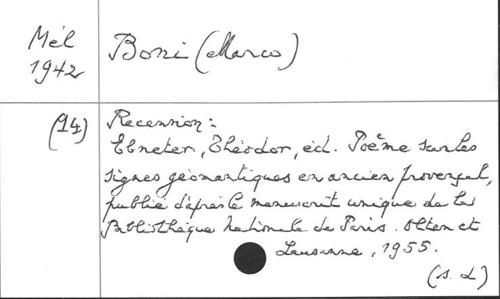 Mél
1942
Boni (Marco)
(14)
Recension:
Ebneter, Théodor, éd. Poème sur les
signes géomantiques en ancien provençal,
publié d'après le manuscrit unique de la
Bibliothèque Nationale de Paris. Olten et
Lausanne, 1955.
(s. d.)